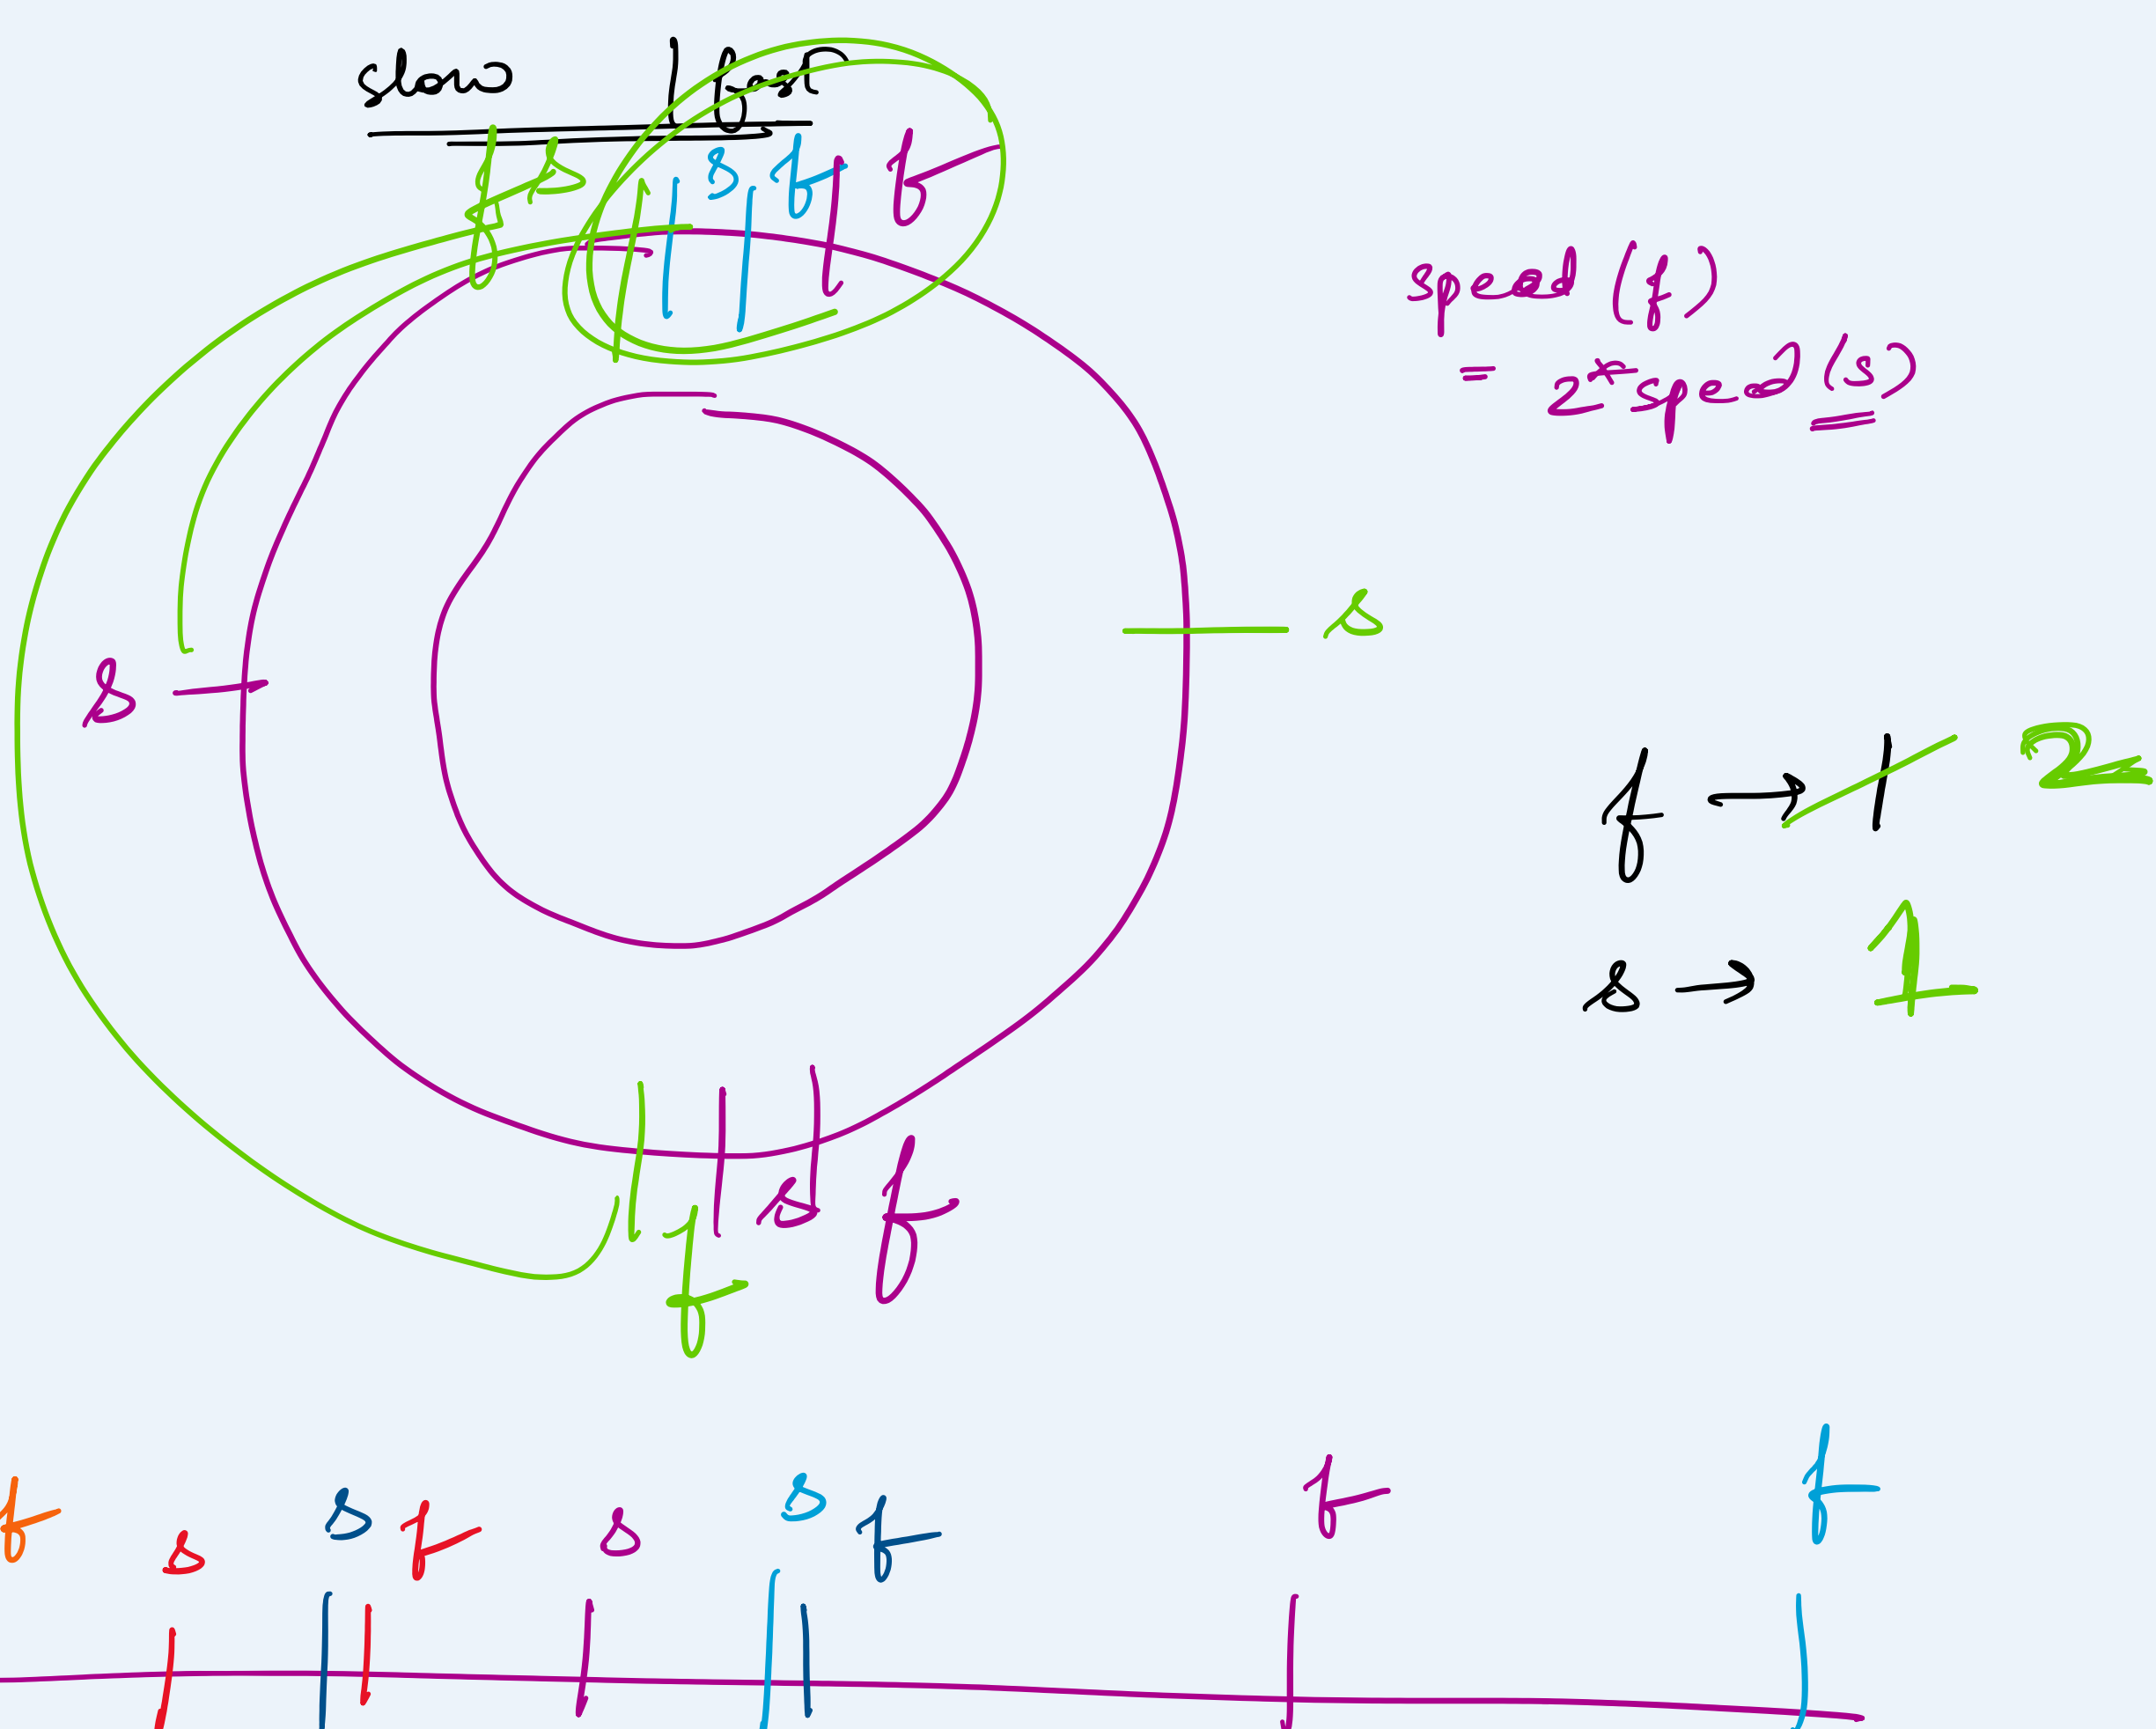 slow | fast
f, s
s, f
f
speed (f)
= 2 * speed (s)
s
s
f → 1 2
s → 1
s f
f
f s s f s s f f f